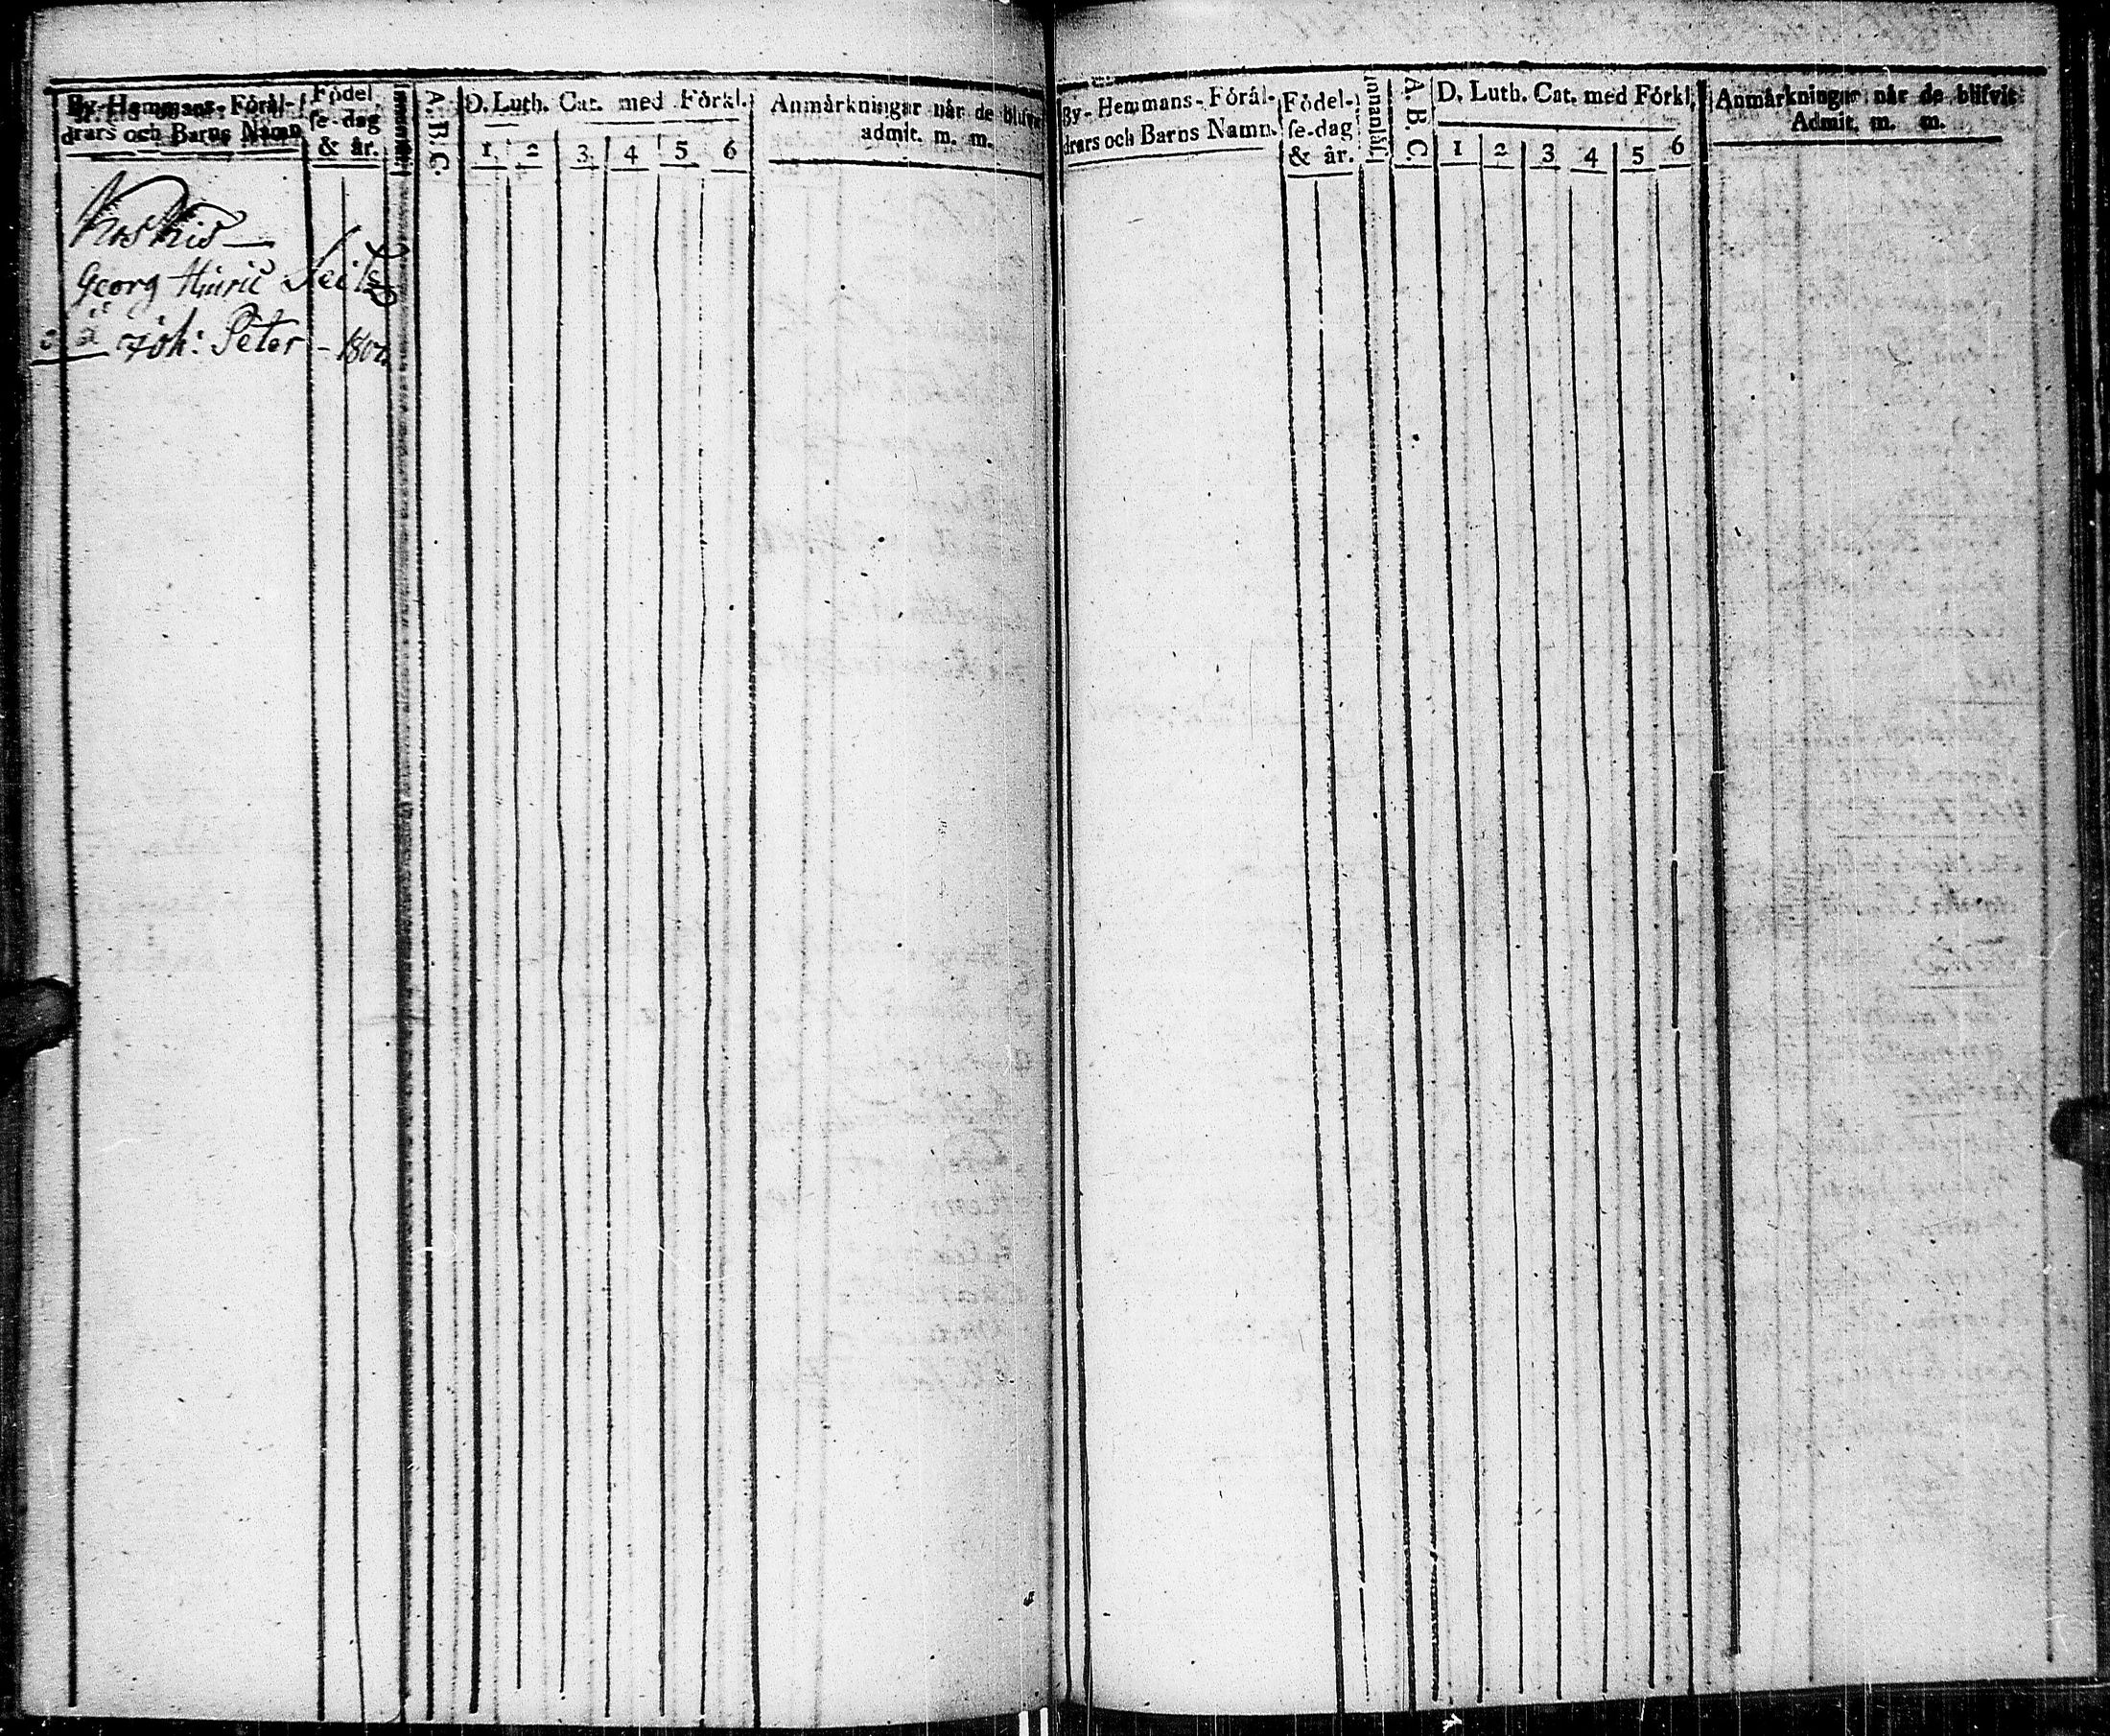 By- Hemmans- Föräl-
drars och Barns Namn
Födel-
se-dag
& år.
A. B. C.
D. Luth. Cat. med Förkl.
1. 2 3. 4 5 6
Anmärkningar når de blifvit
admit. m. m.
Koskis
Georg Hinric Seitz
a Joh: Peter - 180
By- Hemmans- Förål-
drars och Barns Namn.
Födel-
se-dag
& år.
Innanläsn
A. B. C.
D. Luth. Cat. med Förkl.
1 2 3 4 5 6
Anmårkningar når de blifvit
Admit. m. m.